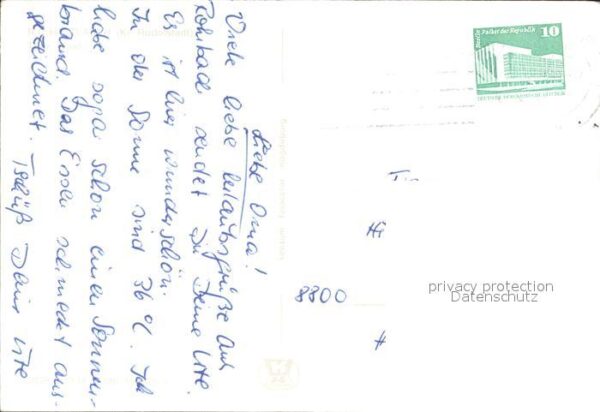 Liebe Oma!
Viele liebe Urlaubsgrüße aus
Rohrbach sendet Dir Deine Ute.
Es ist hier wunderschön.
In der Sonne sind 36 °C. Ich
habe sogar schon einen Sonnen-
brand. Das Essen schmeckt aus-
gezeichnet. Tschüß Deine Ute
Palast der Republik
10
8800
privacy protection
Datenschutz